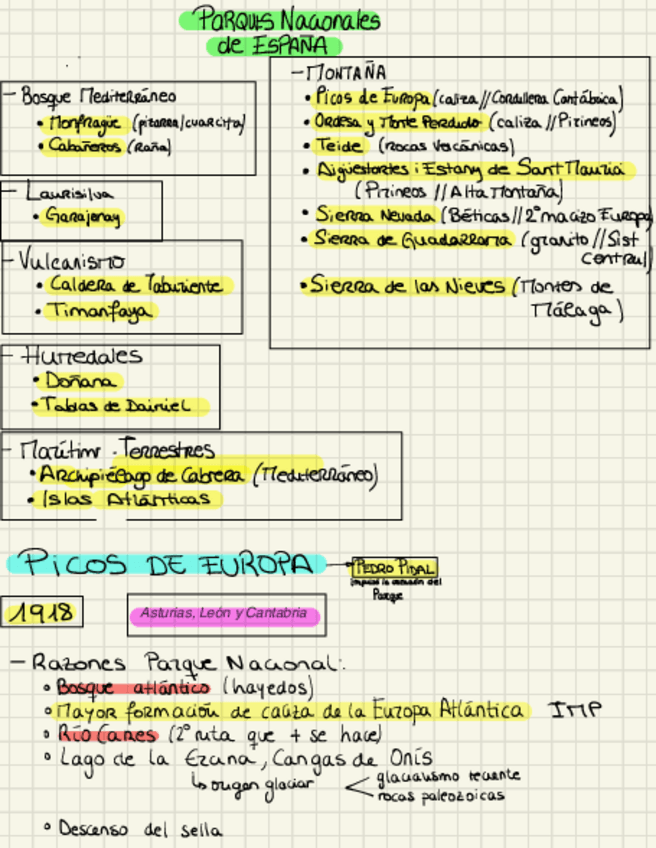 PARQUES Nacionales
de ESPAÑA
- Bosque Mediterráneo
• Monfragüe (pizarra/cuarcita)
• Cabañeros (Raña)
- Laurisilva
• Garajonay
- Vulcanismo
• Caldera de Taburiente
• Timanfaya
- Humedales
• Doñana
• Tablas de Daimiel
- Marítimo-Terrestres
• Archipiélago de Cabrera (Mediterráneo)
• Islas Atlánticas
- MONTAÑA
• Picos de Europa (caliza // Cordillera Cantábrica)
• Ordesa y Monte Perdido (caliza // Pirineos)
• Teide (rocas volcánicas)
• Aigüestortes i Estany de Sant Maurici
(Pirineos // Alta Montaña)
• Sierra Nevada (Béticas // 2º macizo Europa)
• Sierra de Guadarrama (granito // Sist
Central)
• Sierra de las Nieves (Montes de
Málaga)
PICOS DE EUROPA → PEDRO PIDAL
impulsó la creación del
Parque
1918
Asturias, León y Cantabria
- Razones Parque Nacional:
• Bosque atlántico (hayedos)
• Mayor formación de caliza de la Europa Atlántica IMP
• Río Cares (2º ruta que + se hace)
• Lago de la Ercina, Cangas de Onís
↳ origen glaciar < glaciarismo reciente
rocas paleozoicas
• Descenso del sella